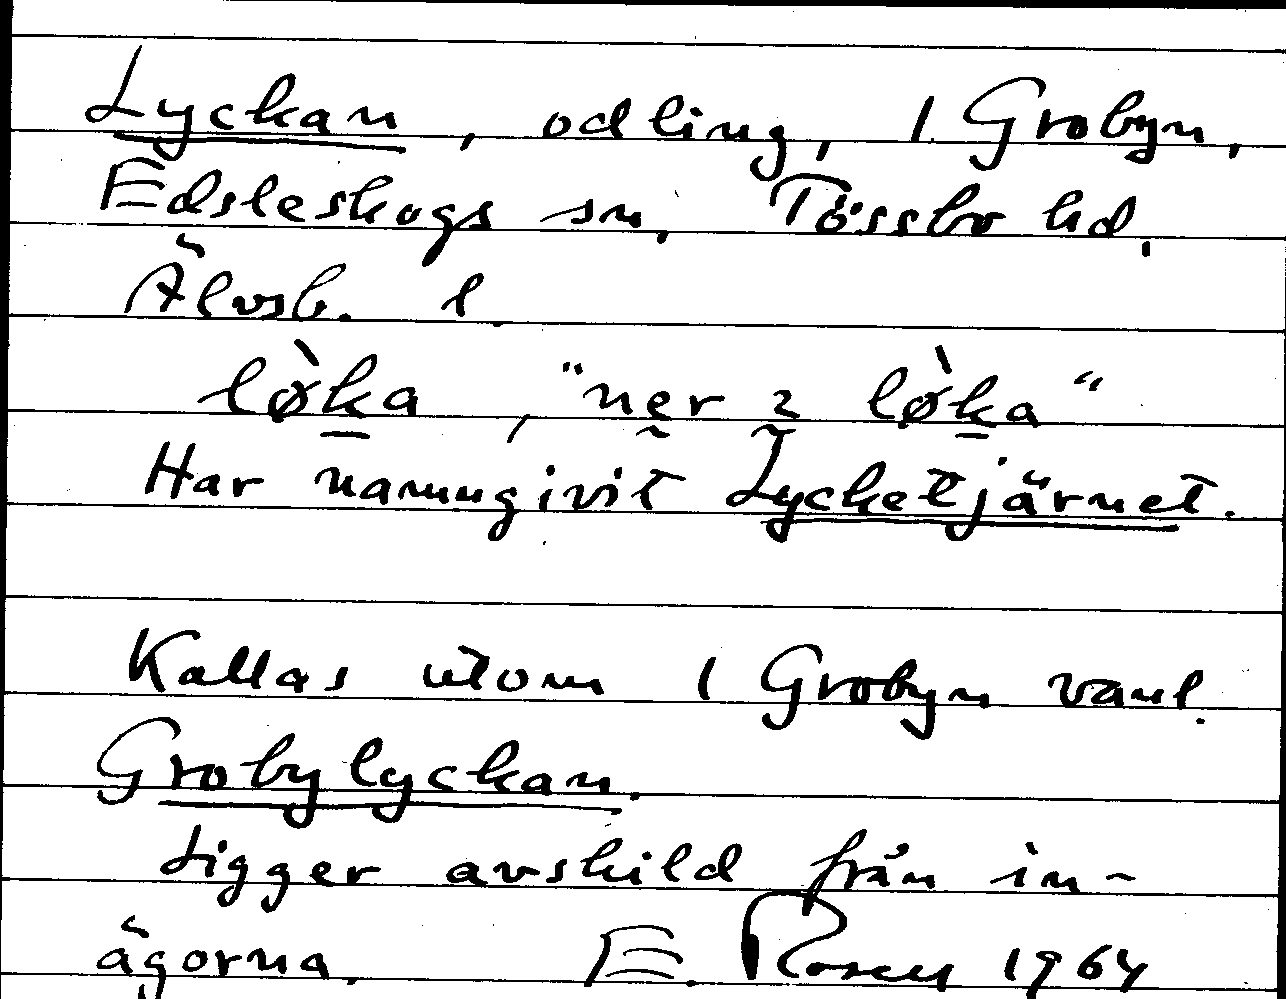 Lyckan, odling, i Grobyn,
Edsleskogs sn, Tössbo hd,
Älvsb. l.
lø̀ḵa, "nẹr ɩ lø̀ḵa"
Har namngivit Lycketjärnet.
Kallas utom i Grobyn vanl.
Grobylyckan.
Ligger avskild från in-
ägorna. E. Rosen 1964